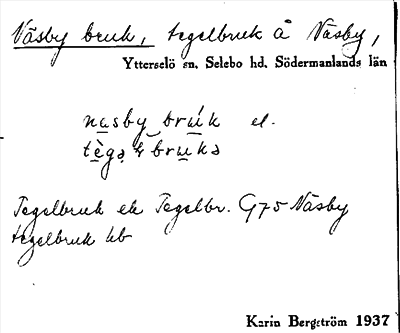 Näsby bruk, tegelbruk å Näsby,
Ytterselö sn, Selebo hd, Södermanlands län
nasby bruk el.
Tegelbruk ek Tegelbr. G75 Näsby
tegelbruk hb
Karin Bergström 1937